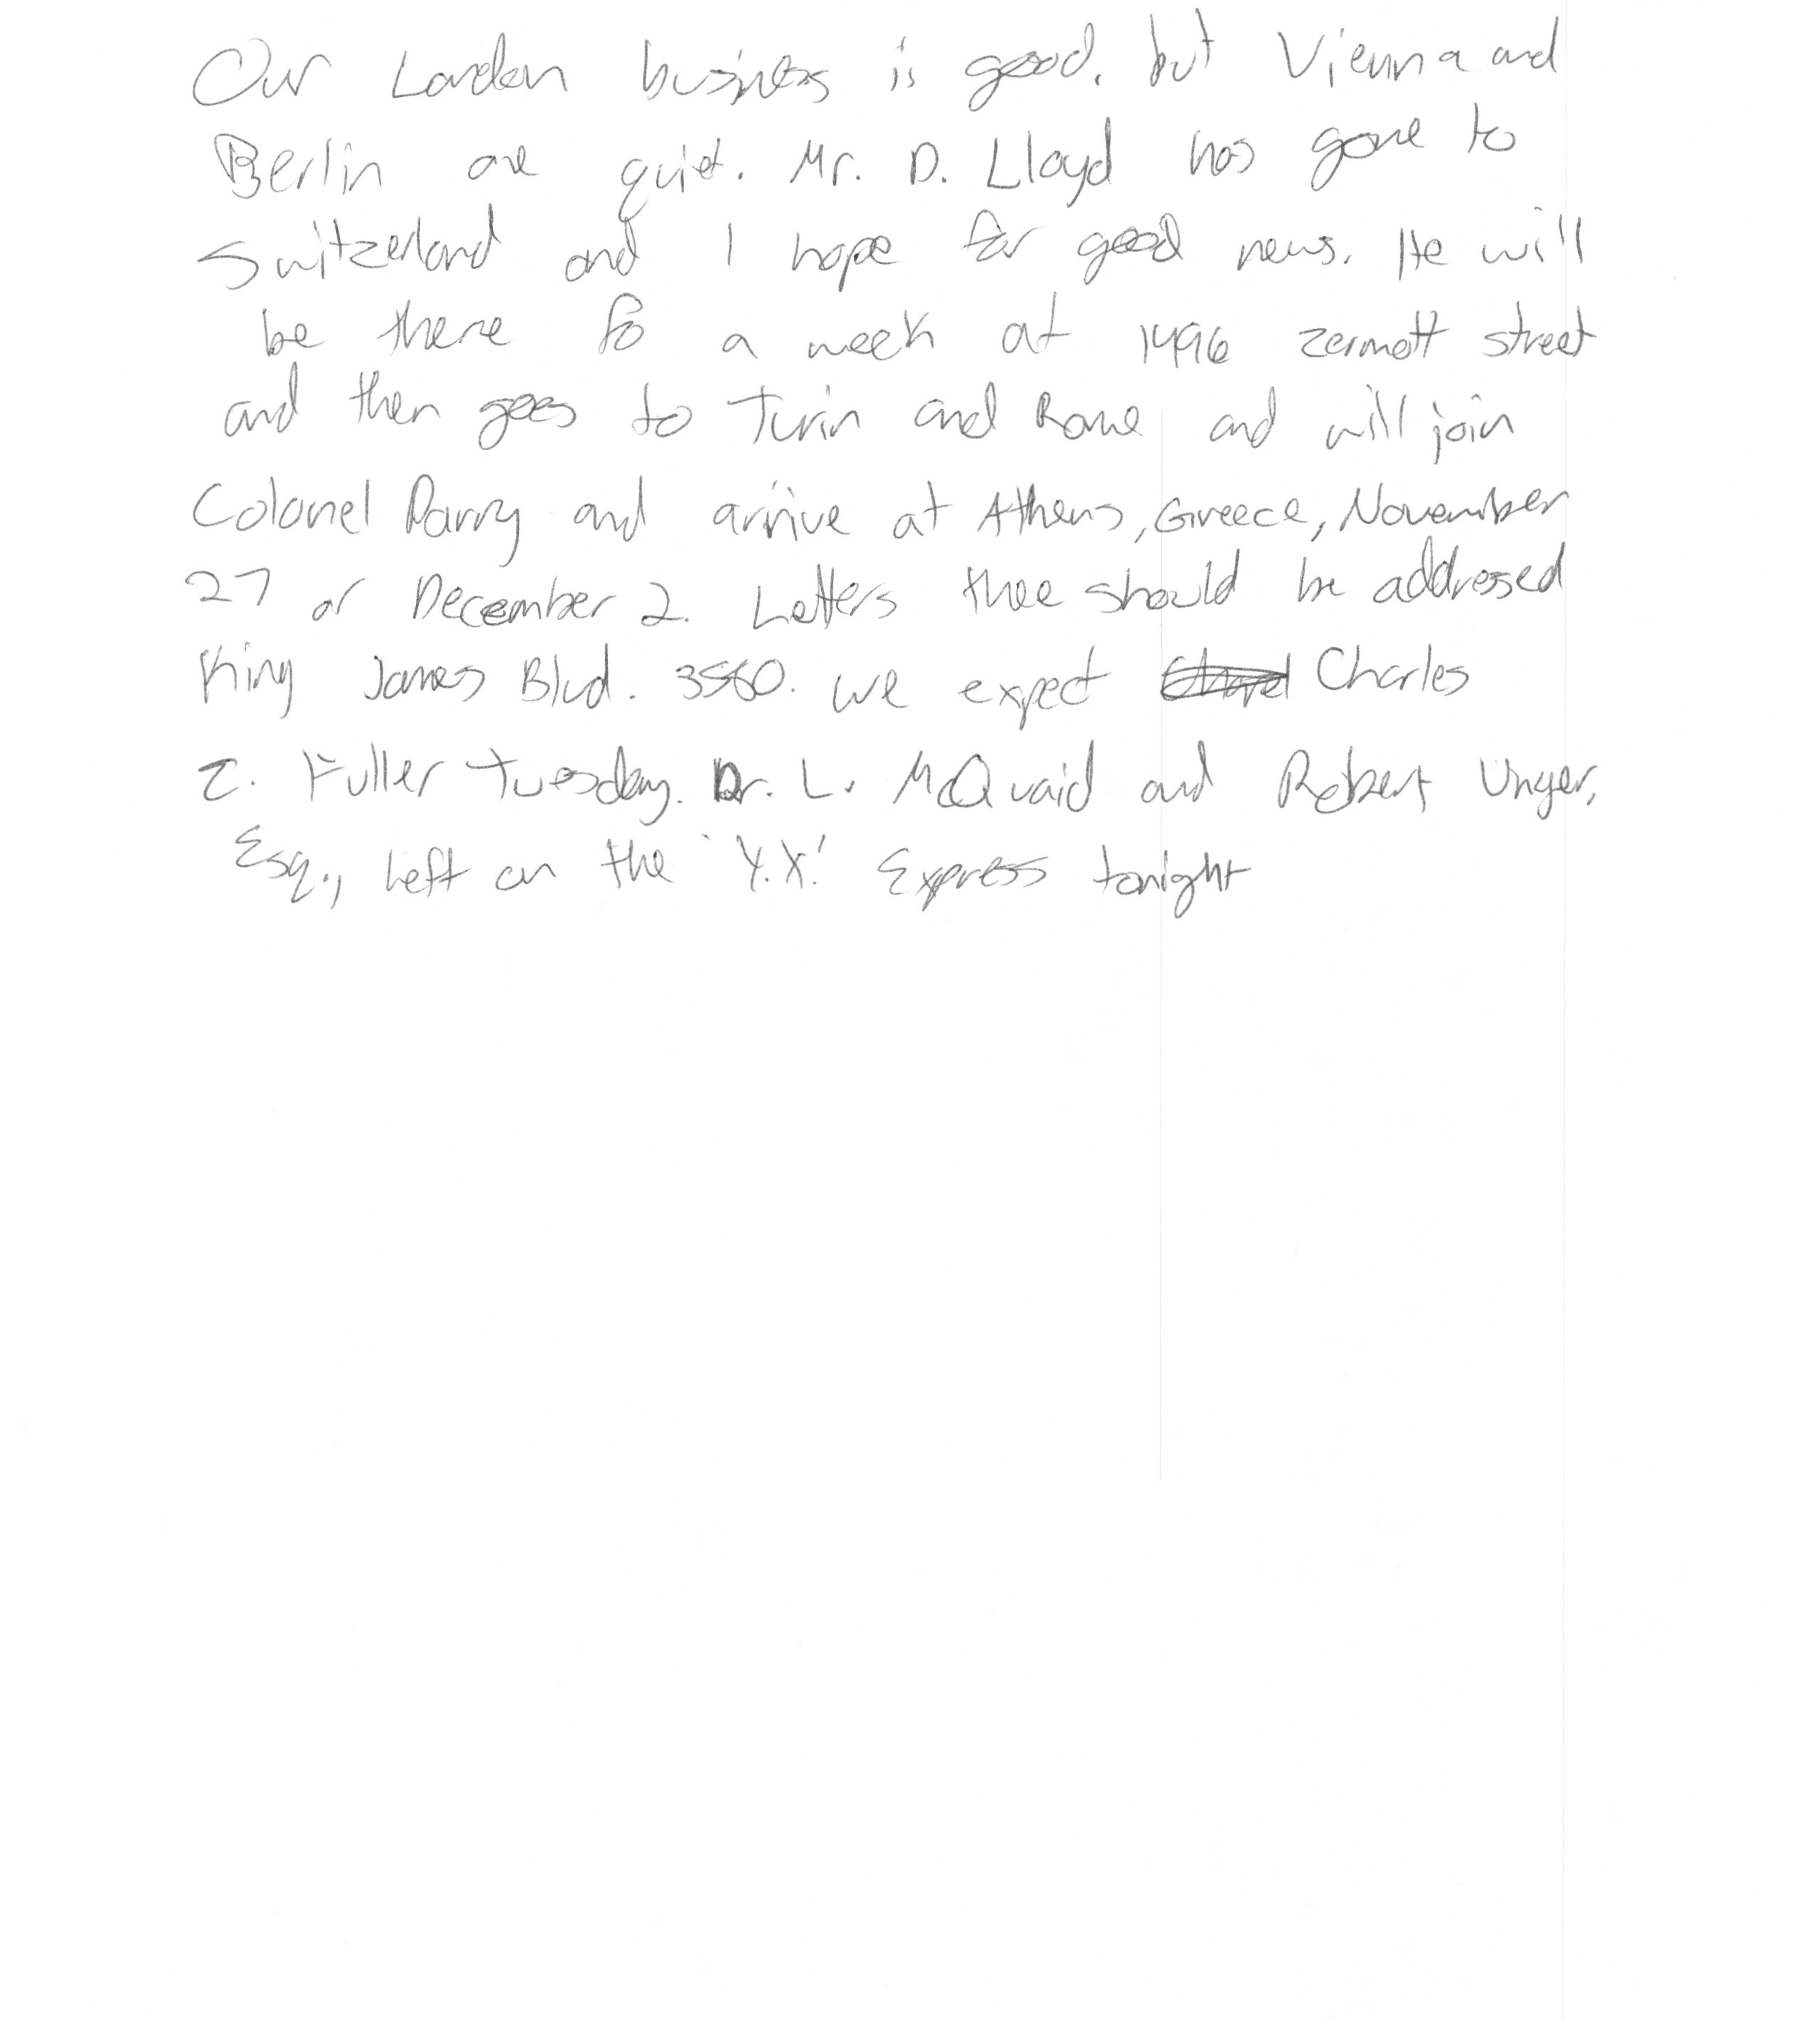 Our London business is good, but Vienna and
Berlin are quiet. Mr. D. Lloyd has gone to
Switzerland and I hope for good news. He will
be there fo a week at 1496 Zermott street
and then goes to Turin and Rome and will join
Colonel Parry and arrive at Athens, Greece, November
27 or December 2. Letters thee should be addressed
King James Blvd. 3560. We expect Charles
Z. Fuller Tuesday. Dr. L. McQuaid and Robert Unger,
Esq., left on the 'Y.X.' Express tonight